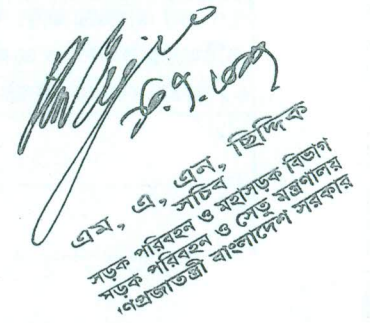 এম, এ, এন, ছিদ্দিক
সচিব
সড়ক পরিবহন ও মহাসড়ক বিভাগ
সড়ক পরিবহন ও সেতু মন্ত্রণালয়
গণপ্রজাতন্ত্রী বাংলাদেশ সরকার